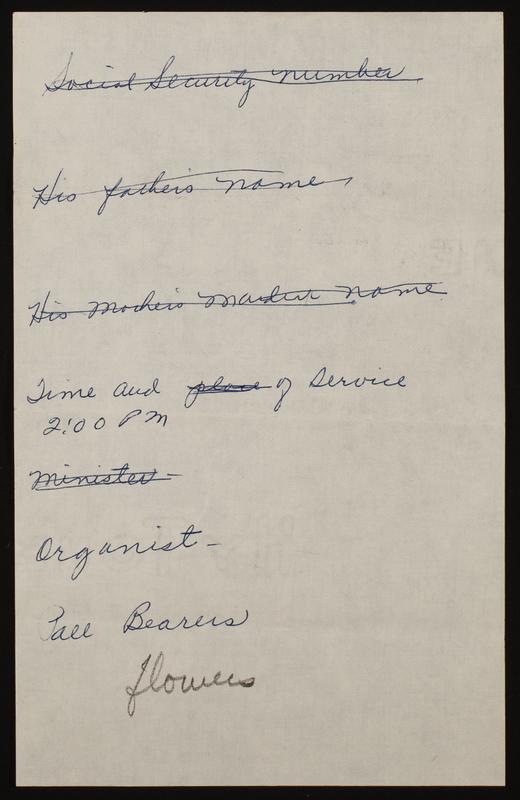 Social Security number
His father's name
His Mother's Maiden name
Time and place of Service
2:00 PM
Minister -
Organist -
Pall Bearers
flowers